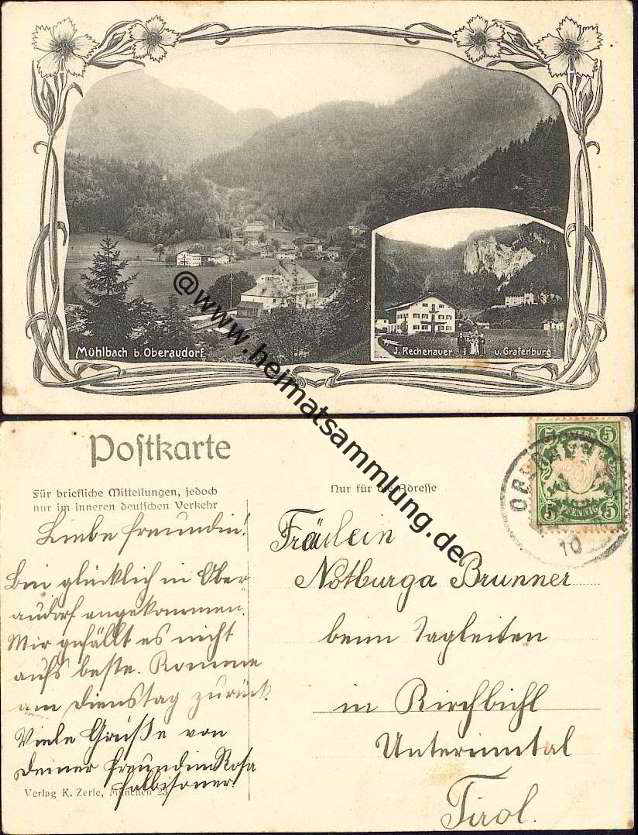 Mühlbach b. Oberaudorf
J. Rechenauer u. Grafenburg
@www.heimatsammlung.de
Postkarte
Für briefliche Mitteilungen, jedoch
nur im inneren deutschen Verkehr
Nur für die Adresse
5 BAYERN 5
5 PFENNIG 5
10
Liebe Freundin!
Bin glücklich in Ober
audorf angekommen.
Mir gefällt es nicht
aufs beste. Komme
am Dienstag zurück
Viele Grüße von
Deiner Freundin Rosa
Fräulein
Notburga Brunner
beim Tagleiten
in Kirchbichl
Unterinntal
Tirol.
Verlag K. Zerle, München 23